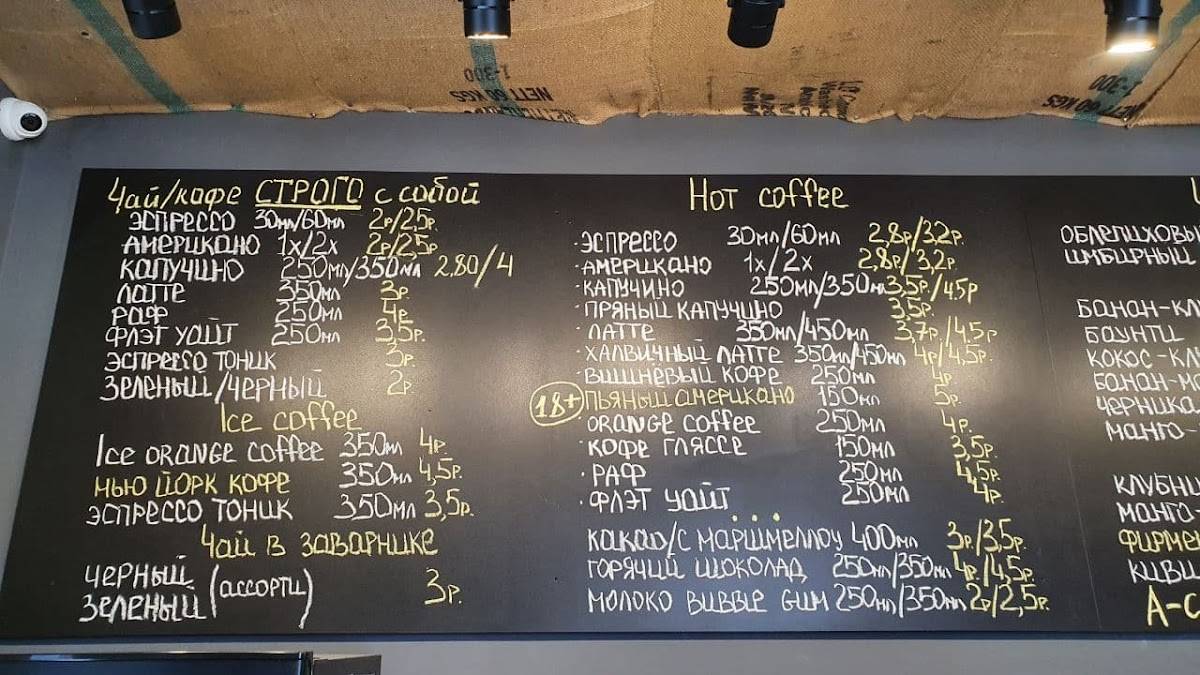 1-300
NETT 60 KGS
1-300
NETT 60 KGS
Чай/кофе СТРОГО с собой
ЭСПРЕССО 30мл/60мл 2р/2,5р.
АМЕРИКАНО 1х/2х 2р/2,5р.
КАПУЧИНО 250мл/350мл 2.80/4
ЛАТТЕ 350мл 3р.
РАФ 250мл 4р.
ФЛЭТ УАЙТ 250мл 3,5р.
ЭСПРЕССО ТОНИК 3р.
ЗЕЛЕНЫЙ/ЧЕРНЫЙ 2р.
Ice coffee
Ice ORANGE COFFEE 350мл 4р.
НЬЮ ЙОРК КОФЕ 350мл 4,5р.
ЭСПРЕССО ТОНИК 350мл 3,5р.
Чай в заварнике
ЧЕРНЫЙ
ЗЕЛЕНЫЙ (АССОРТИ) 3р.
Hot coffee
· ЭСПРЕССО 30мл/60мл 2,8р/3,2р.
· АМЕРИКАНО 1х/2х 2,8р/3,2р.
· КАПУЧИНО 250мл/350мл 3,5р./4,5р
· ПРЯНЫЙ КАПУЧИНО 3,5р.
· ЛАТТЕ 350мл/450мл 3,7р/4.5р
· ХАЛВИЧНЫЙ ЛАТТЕ 350мл/450мл 4р/4,5р.
· ВИШНЕВЫЙ КОФЕ 250мл 4р.
18+ ПЬЯНЫЙ АМЕРИКАНО 150мл 5р.
· ORANGE COFFEE 250мл 4р.
· КОФЕ ГЛЯССЕ 150мл 3,5р.
· РАФ 250мл 4,5р.
· ФЛЭТ УАЙТ 250мл 4р.
...
КАКАО/С МАРШМЕЛЛОУ 400мл 3р/3,5р.
ГОРЯЧИЙ ШОКОЛАД 250мл/350мл 4р./4,5р.
МОЛОКО BUBBLE GUM 250мл/350мл 2р/2,5р.
ОБЛЕПИХОВЫ
ИМБИРНЫЙ
БАНАН-КЛ
БАУНТИ
КОКОС-КЛ
БАНАН-М
ЧЕРНИКА
МАНГО-
КЛУБНИ
МАНГО-
ФИРМЕ
КИВИ
А-С